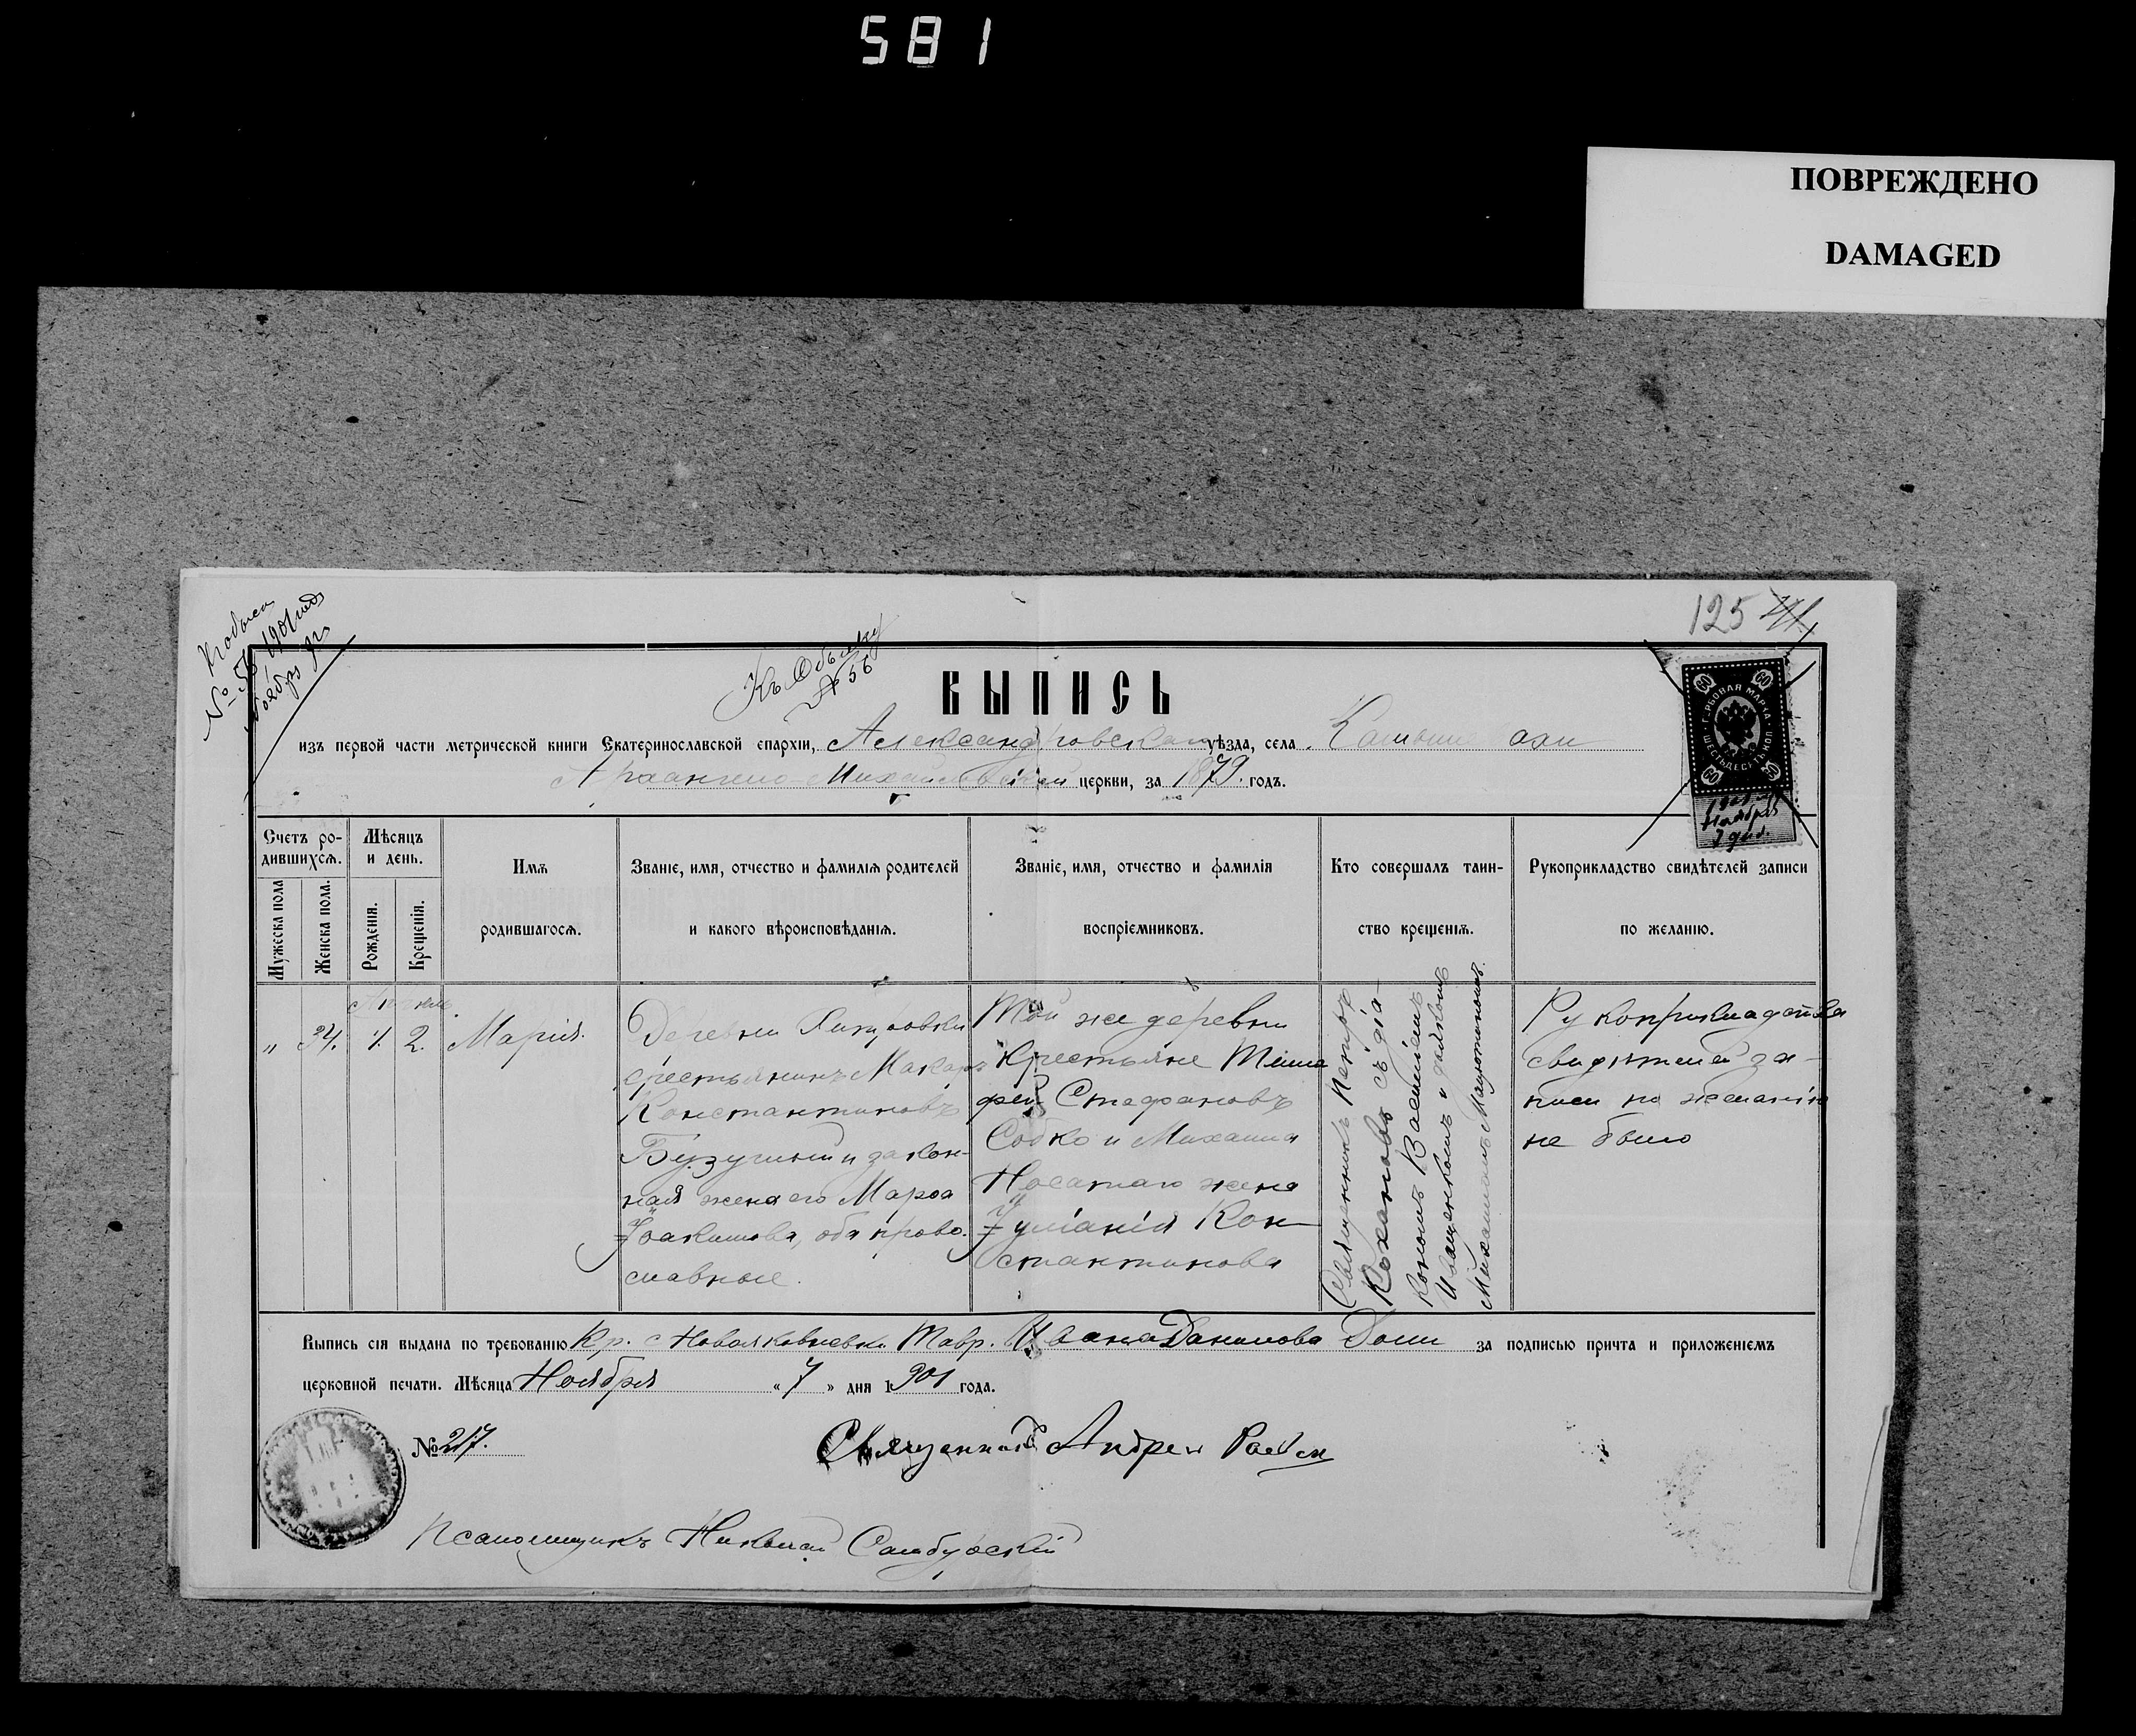 581
ПОВРЕЖДЕНО
DAMAGED
125
№ 56 1901 года
Ноября 7 дня
Къ Обыску
№ 56
ВЫПИСЬ
изъ первой части метрической книги Екатеринославской епархіи, Александровскаго уѣзда, села
Архангело-Михайловской церкви, за 1879 годъ.
60 60
ГЕРБОВАЯ МАРКА
ШЕСТЬДЕСЯТЪ КОП.
60 60
1901 г.
Ноября
7 дня.
Счетъ ро-
дившихся.
Мужеска пола
Женска пола.
Мѣсяцъ
и день.
Рожденія.
Крещенія.
Имя
родившагося.
Званіе, имя, отчество и фамилія родителей
и какого вѣроисповѣданія.
Званіе, имя, отчество и фамилія
воспріемниковъ.
Кто совершалъ таин-
ство крещенія.
Рукоприкладство свидѣтелей записи
по желанію.
Апрѣль
„ 34. 1. 2. Марія.
Деревни
крестьянинъ Макаръ
Константиновъ
и закон-
ная жена его Марѳа
Іоакимова, оба право-
славные.
Той же деревни
крестьяне Тимо
фей Стефановъ
Собко и Михаила
Носатаго жена
Іуліанія Кон-
стантинова
Священникъ Петръ
Кохановъ съ діа-
кономъ Василіемъ
Иващенкомъ и дьякомъ
Михаиломъ
Рукоприкладства
свидѣтелей за-
писи по желанію
не было
Выпись сія выдана по требованію Кр. с Новояковлевки Тавр. Ивана Данилова за подписью причта и приложеніемъ
церковной печати. Мѣсяца Ноября „ 7 " дня 1901 года.
№ 217.
Священникъ Андрей
Псаломщикъ Николай Самбурскій